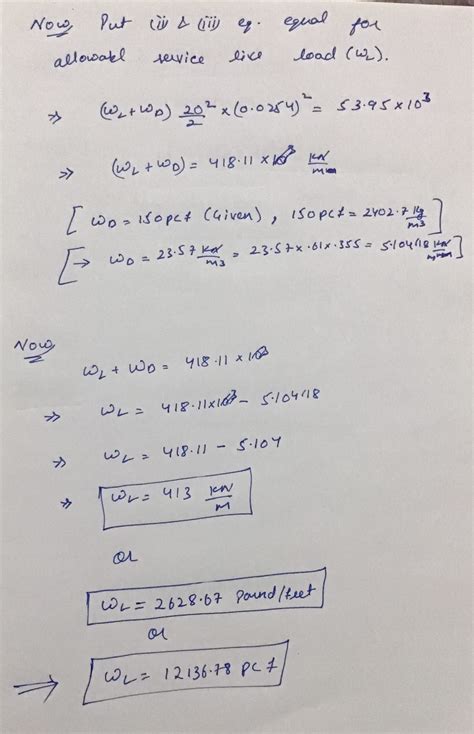 Now, Put (ii) & (iii) eq. equal for
allowabl service live load (WL).
⇒ (WL+WD) 20²/2 × (0.0254)² = 53.95×10³
⇒ (WL+WD) = 418.11 × 10³ KN/m
[ WD = 150 pcf (Given), 150 pcf = 2402.7 Kg/m3 ]
[→ WD = 23.57 KN/m3 = 23.57×.61×.355 = 5.10418 KN/m ]
Now,
WL + WD = 418.11 × 10³
⇒ WL = 418.11×10³ - 5.10418
⇒ WL = 418.11 - 5.104
⇒ WL = 413 KN/M
or
WL = 2628.67 Pound/feet
or
⇒ WL = 12136.78 pcf